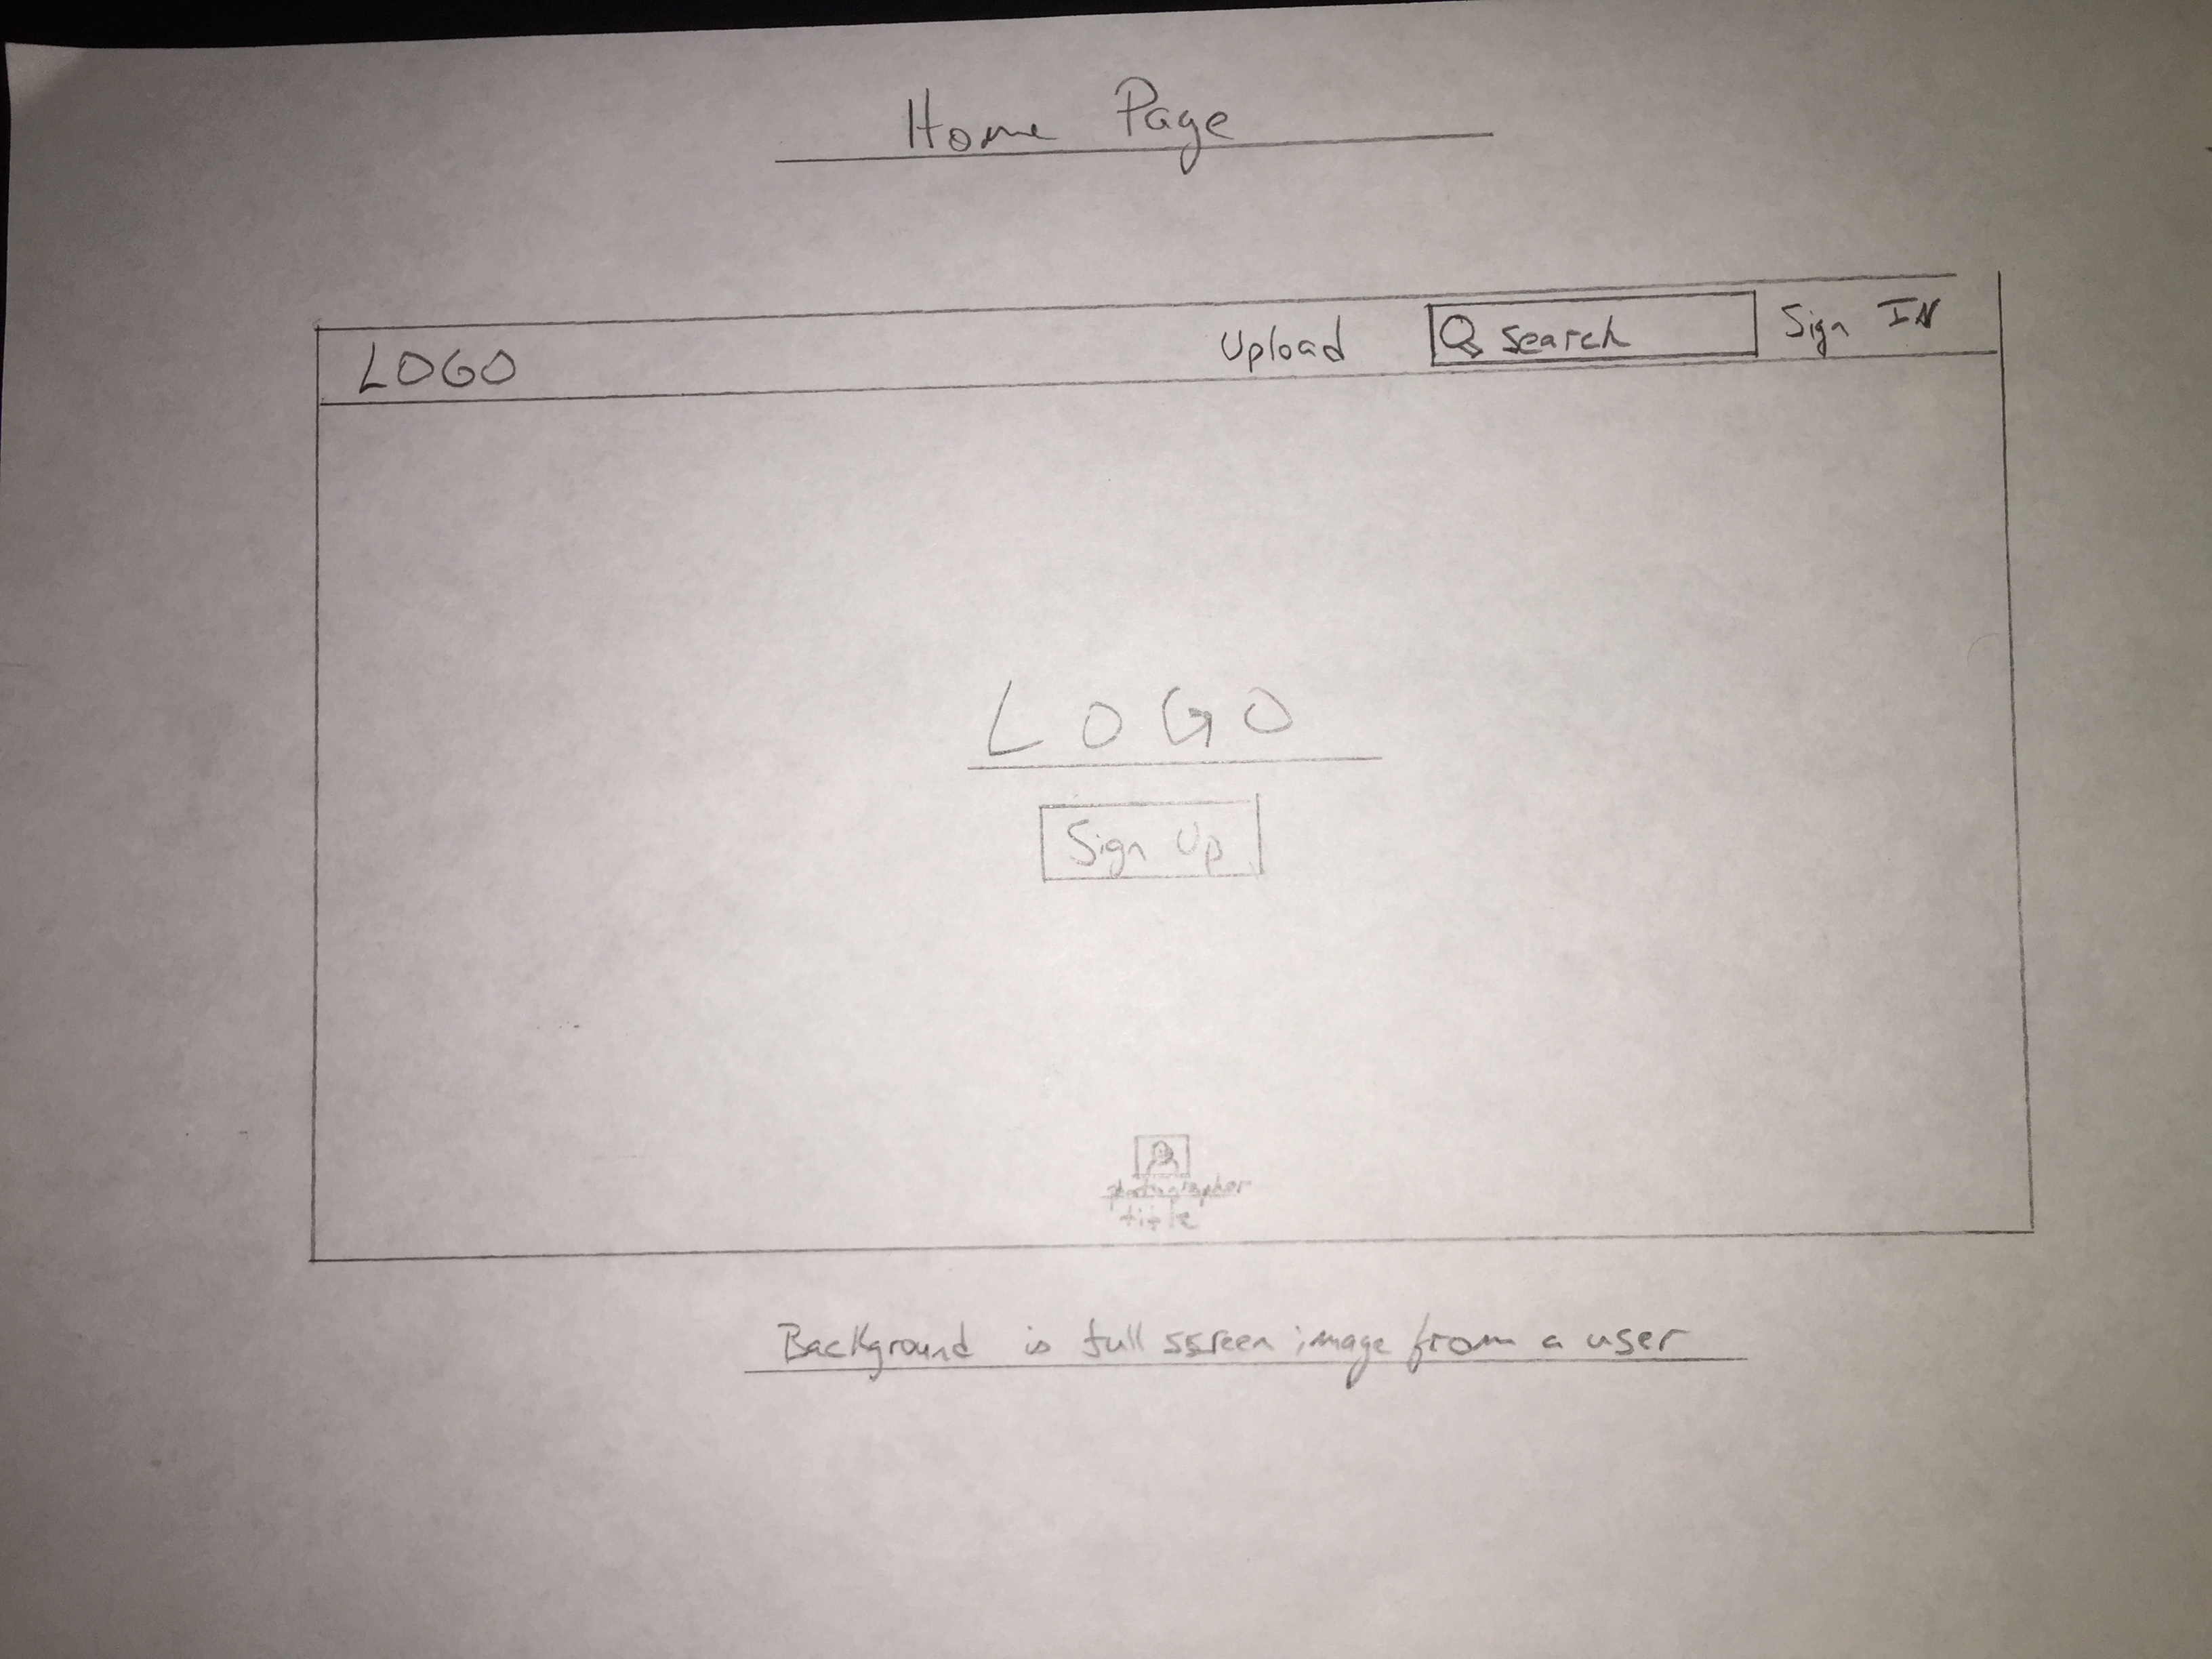 Home Page
LOGO Upload search Sign IN
LOGO
Sign Up
photographer
title
Background is full ssreen image from a user